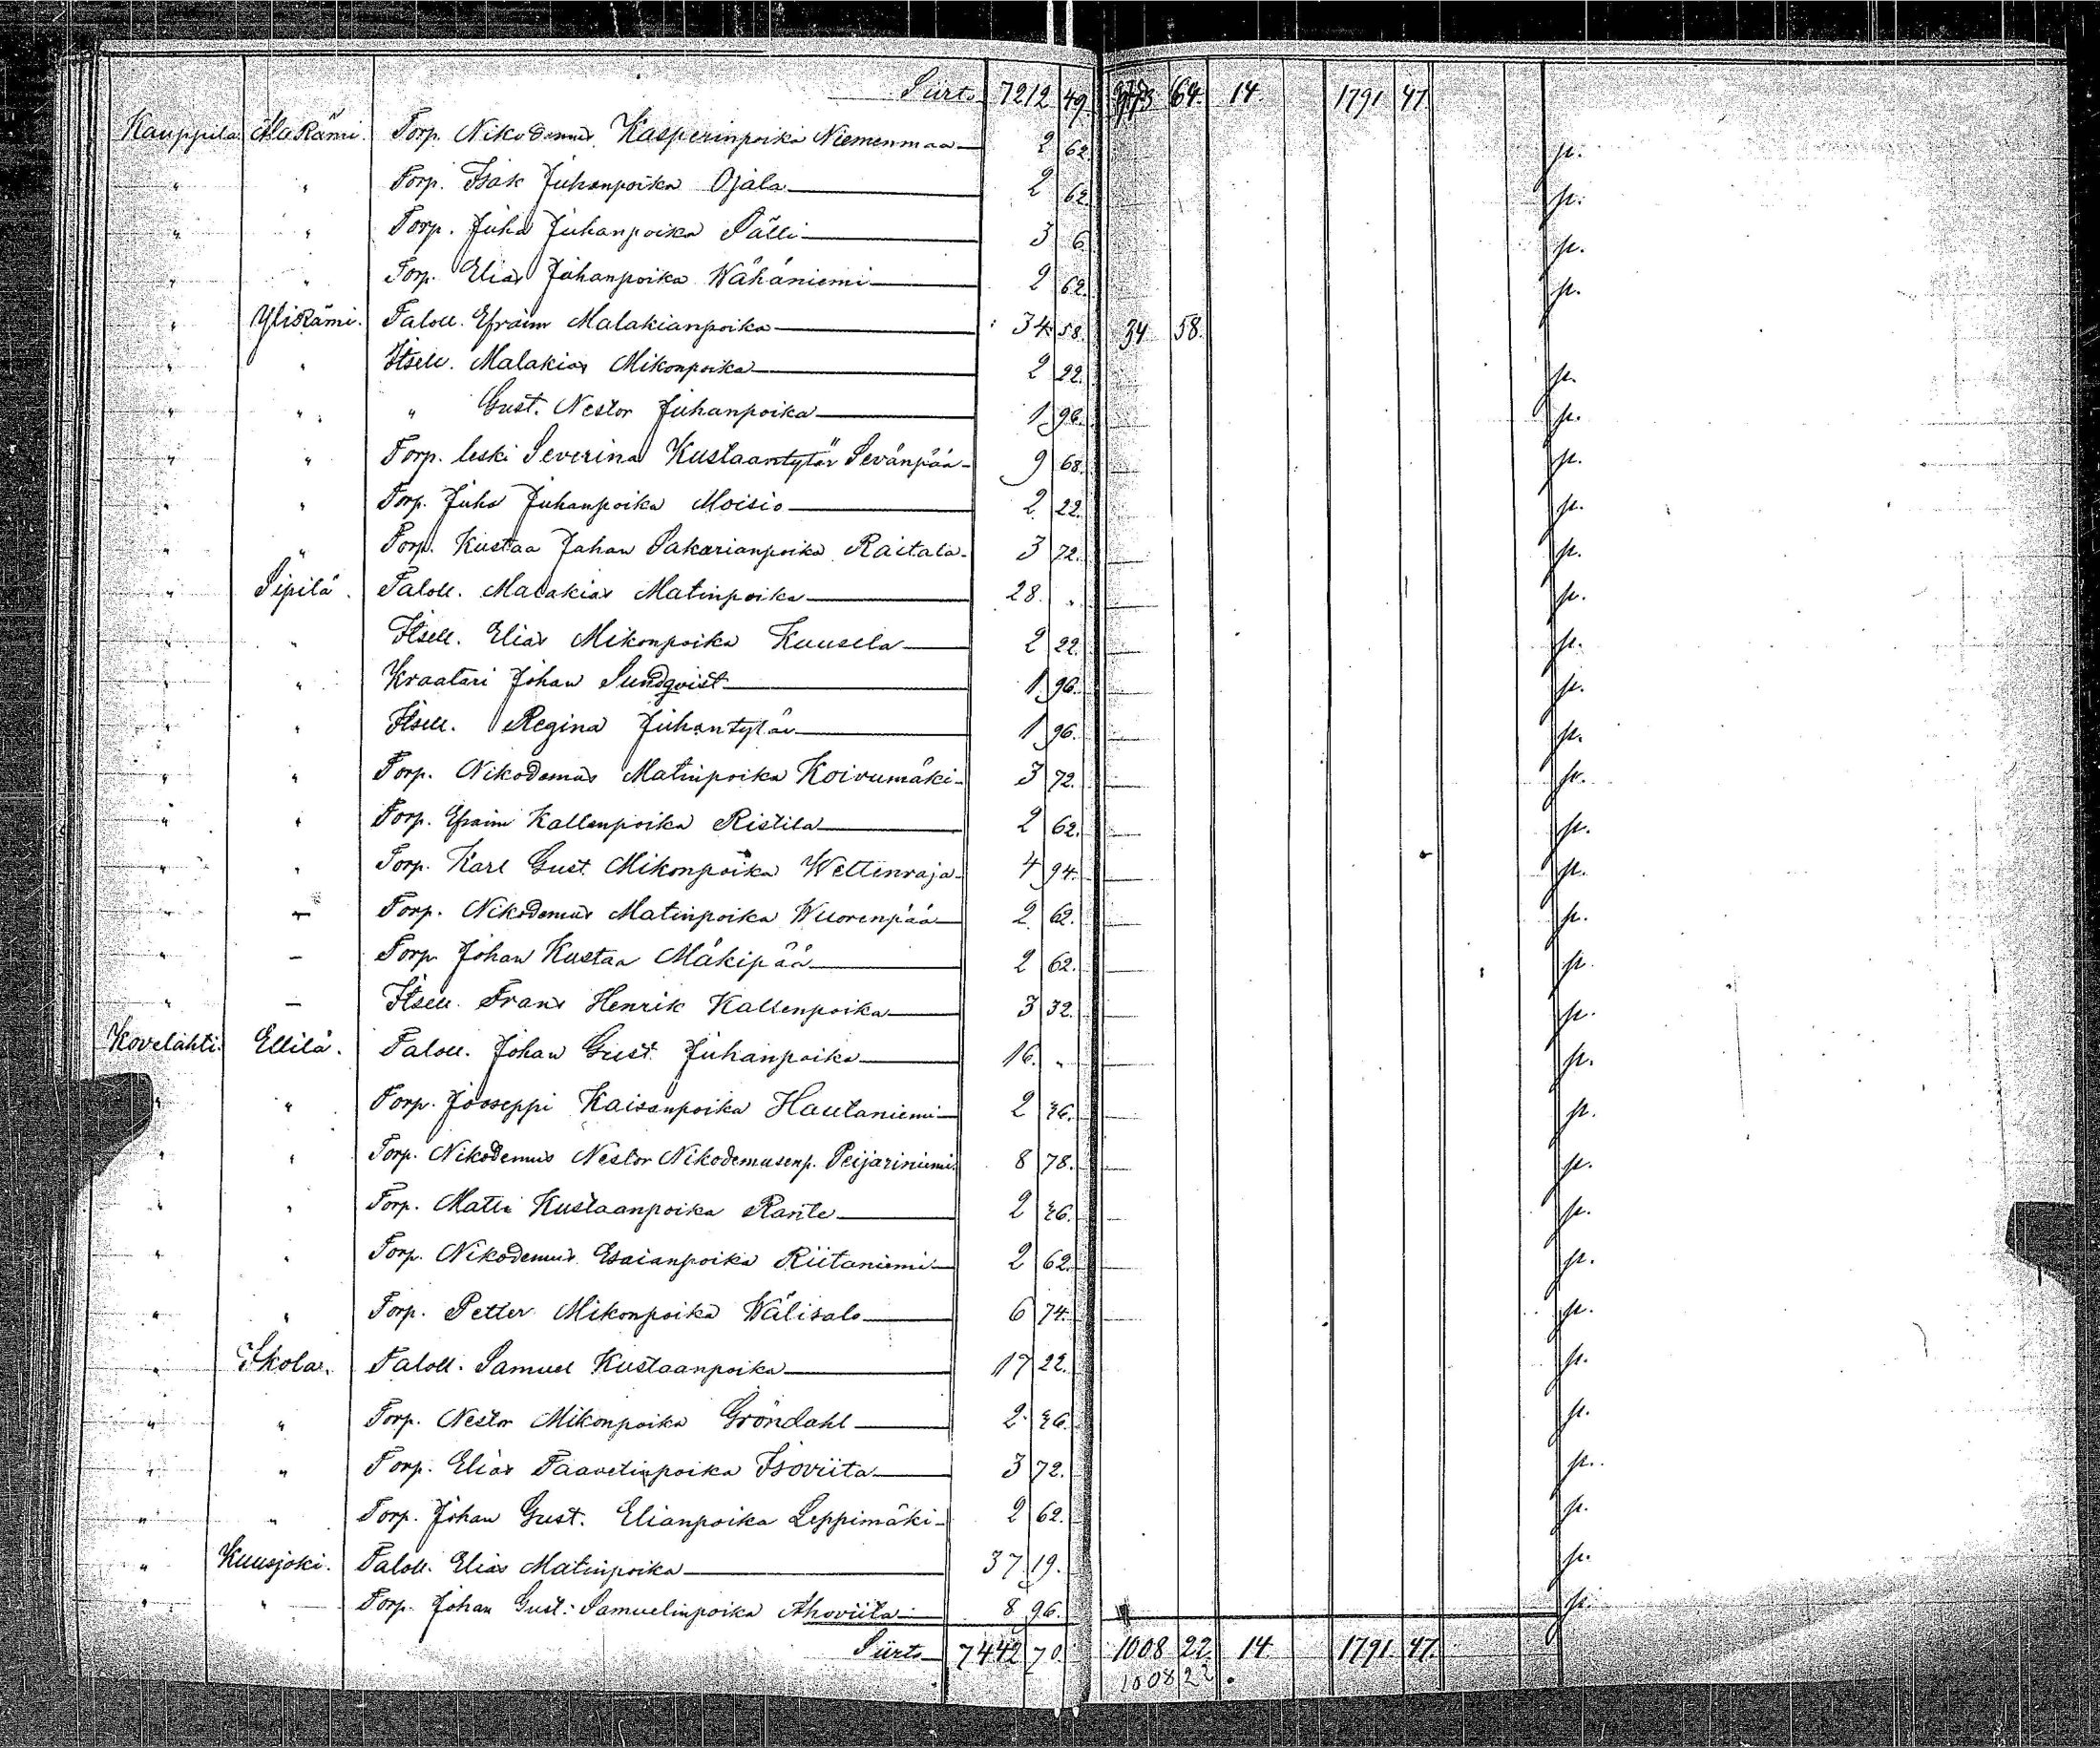 Siirto 7212 49. 973 64. 14. 1791 47
Kauppila AlaRämi. Torp. Nikodemus Kasperinpoika Niemenmaa 2 62. p.
" " Torp. Isak Juhanpoika Ojala 2 62. p.
" " Torp. Juha Juhanpoika Sälli 3 6. p.
" " Torp. Elias Juhanpoika Wähäniemi 2 62. p.
" YliRämi. Taloll. Efraim Malakianpoika 34 58. 34 58.
" " Itsell. Malakias Mikonpoika 2 22. p.
" " " Gust. Nestor Juhanpoika 1 96. p.
" " Torp. leski Severina Kustaantytär Sevänpää 9 68. p.
" " Torp. Juha Juhanpoika Moisio 2 22. p.
" " Torp. Kustaa Johan Sakarianpoika Raitala 3 72. p.
" Sipilä. Taloll. Malakias Matinpoika 28. " p.
" " Itsell. Elias Mikonpoika Kuusela 2 22. p.
" " Kraatari Johan Sundqvist 1 96. p.
" " Itsell. Regina Juhantytär 1 96. p.
" " Torp. Nikodemus Matinpoika Koivumäki 3 72. p.
" " Torp. Efraim Kallenpoika Ristila 2 62. p.
" " Torp. Karl Gust. Mikonpoika Wettenraja 4 94. p.
" — Torp. Nikodemus Matinpoika Wuorenpää 2 62. p.
" — Torp. Johan Kustaa Mäkipää 2 62. p.
" — Itsell. Frans Henrik Kallenpoika 3 32. p.
Kovelahti. Ellilä. Taloll. Johan Gust. Juhanpoika 16. " p.
" " Torp. Jooseppi Kaisanpoika Hautaniemi 2 26. p.
" " Torp. Nikodemus Nestor Nikodemusenp. Peijariniemi 8 78. p.
" " Torp. Matti Kustaanpoika Rante 2 26. p.
" " Torp. Nikodemus Esaianpoika Riitaniemi 2 62. p.
" " Torp. Petter Mikonpoika Wälisalo 6 74. p.
" Skola. Taloll. Samuel Kustaanpoika 17 22. p.
" " Torp. Nestor Mikonpoika Gröndahl 2 26. p.
" " Torp. Elias Taavetinpoika Isoviita 3 72. p.
" " Torp. Johan Gust. Elianpoika Leppimäki 2 62. p.
" Kuusjoki. Taloll. Elias Matinpoika 37 19. p.
" " Torp. Johan Gust. Samuelinpoika Ahoviita 8 96. p.
Siirto 7442 70. 1008 22. 14. 1791. 47.
1008 22